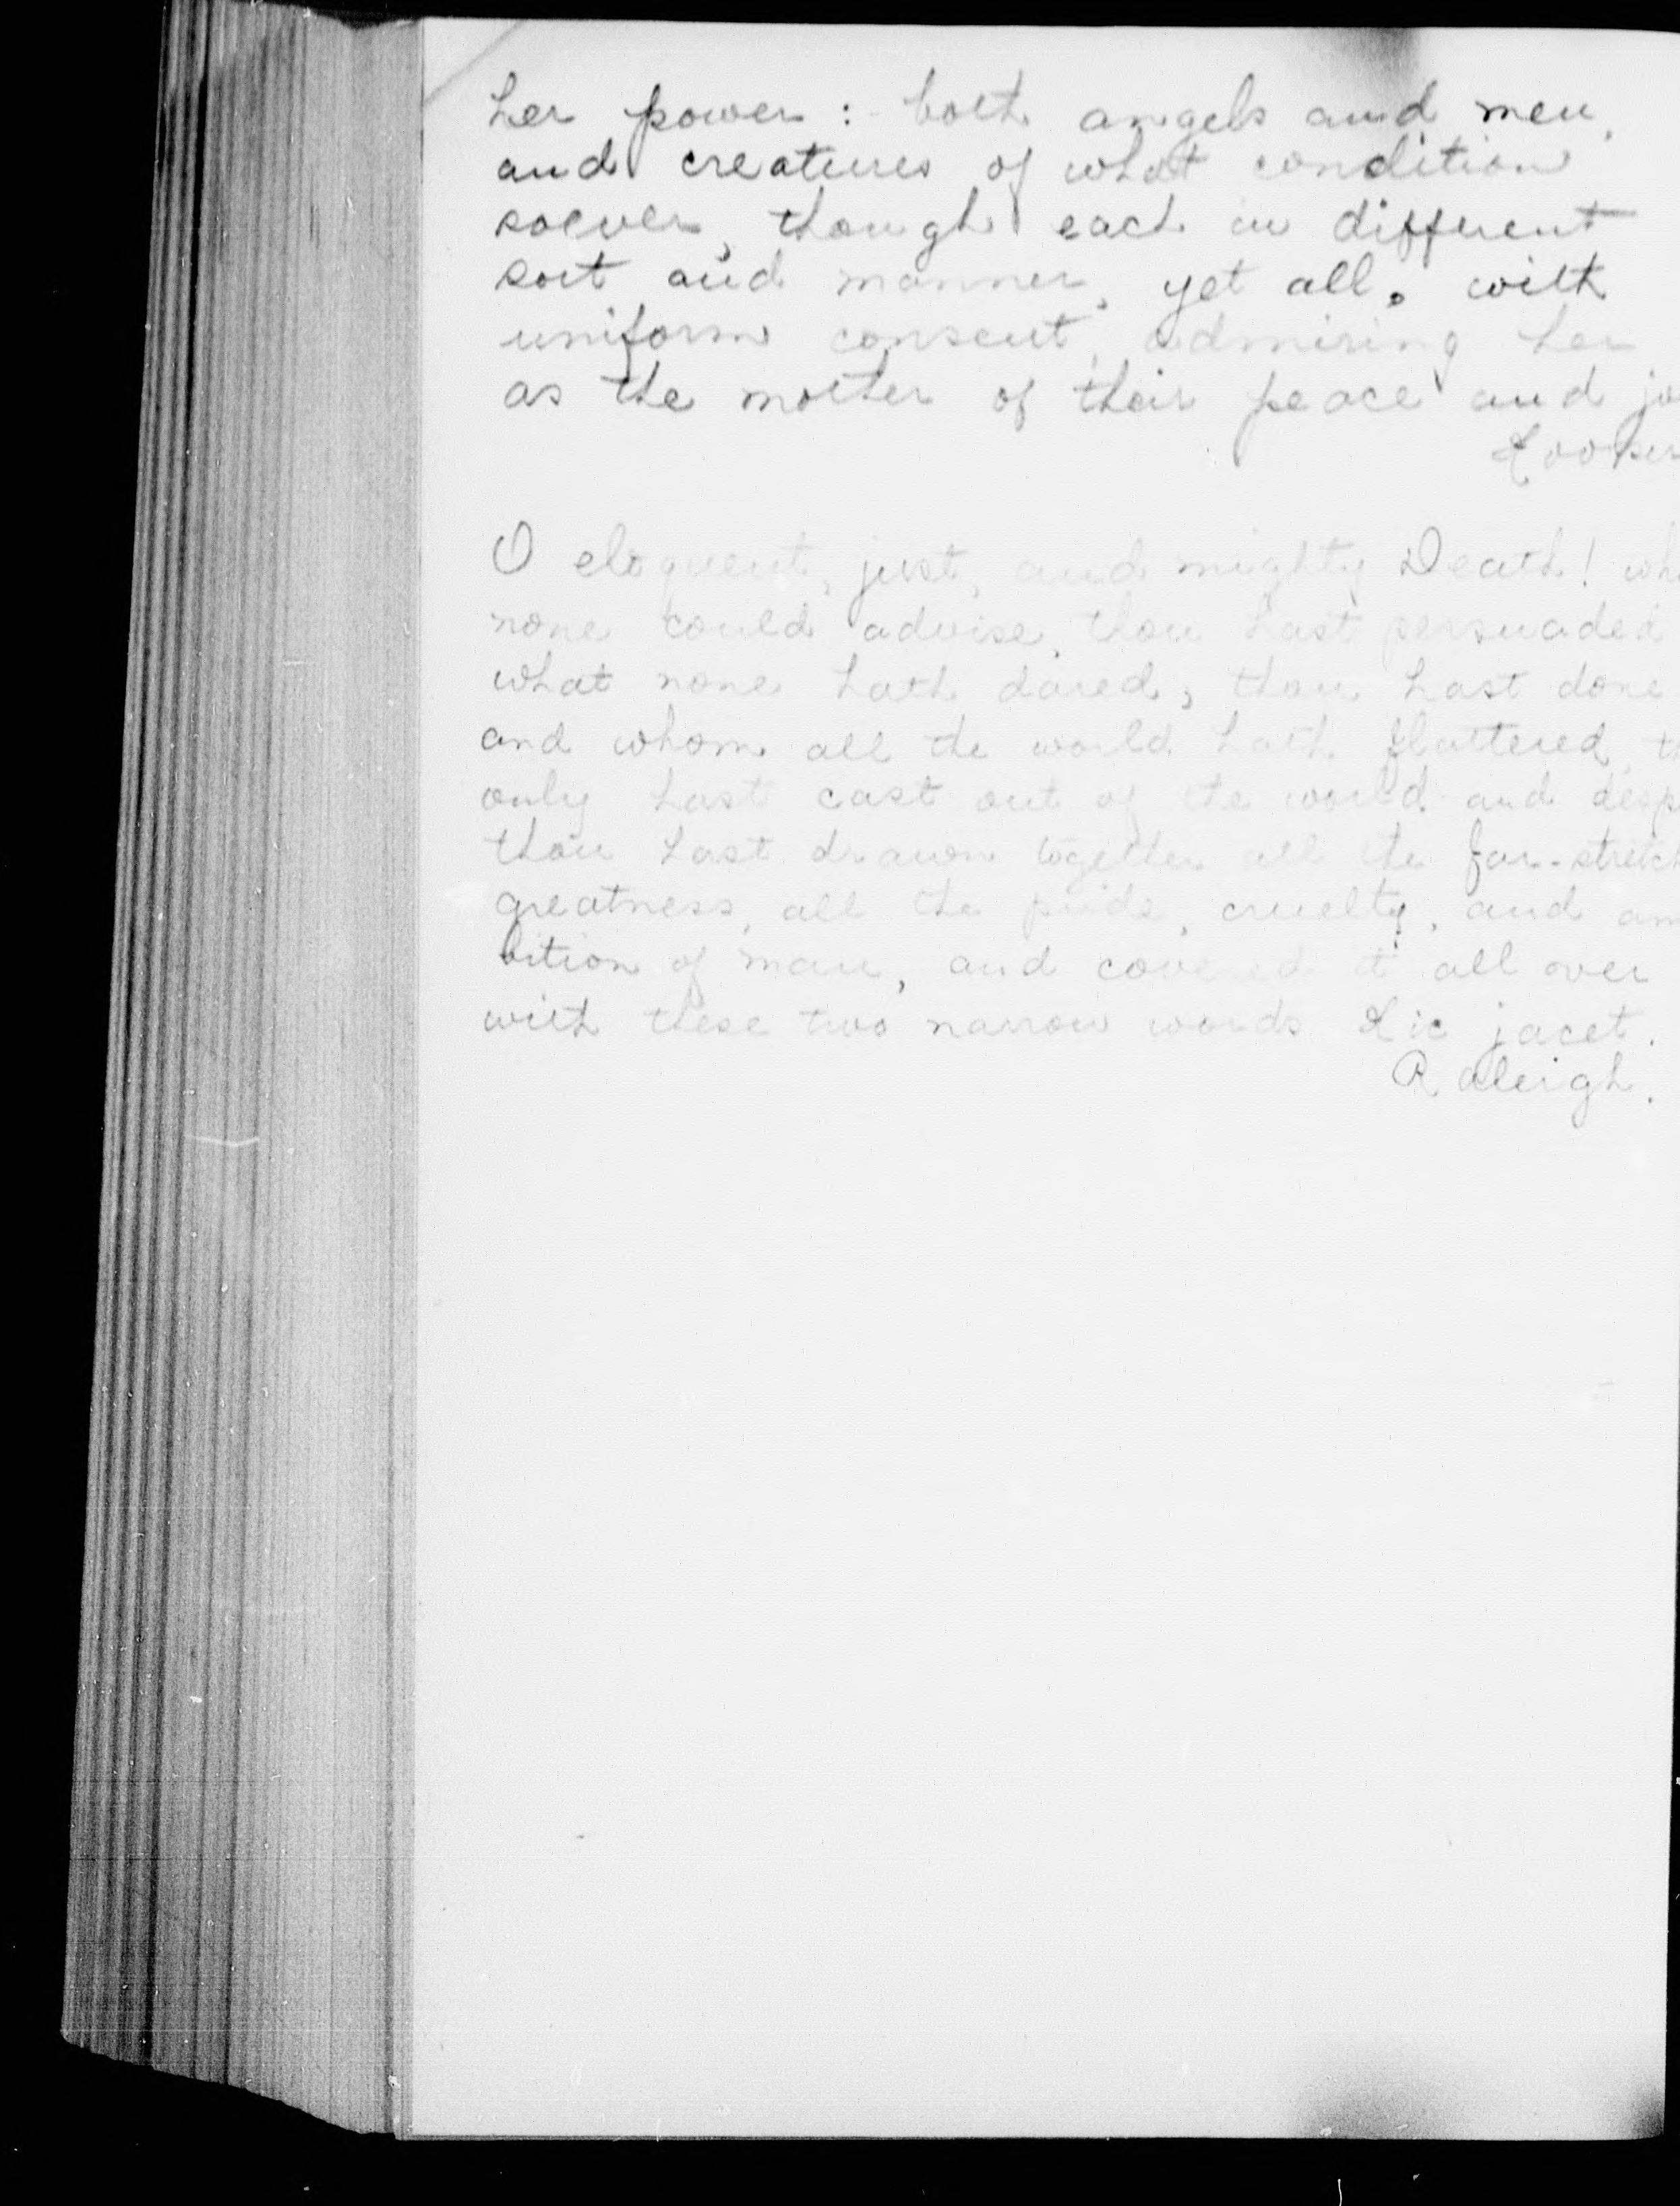 her power: both angels and men,
and creatures of what condition
soever, though each in different
sort and manner, yet all, with
uniform consent, admiring her
as the mother of their peace and jo
Hooker
O eloquent, just, and mighty Death! wh
none could advise, thou hast persuaded
what none hath dared, thou hast done
and whom all the world hath flattered, t
only hast cast out of the world and desp
thou hast drawn together all the far-stretch
greatness, all the pride, cruelty, and am
bition of man, and covered it all over
with these two narrow words Hic jacet.
Raleigh.